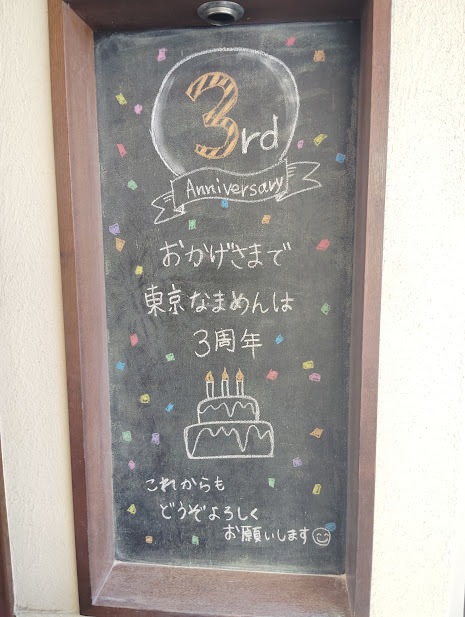 3rd
Anniversary
おかげさまで
東京なまめんは
3周年
これからも
どうぞよろしく
お願いします